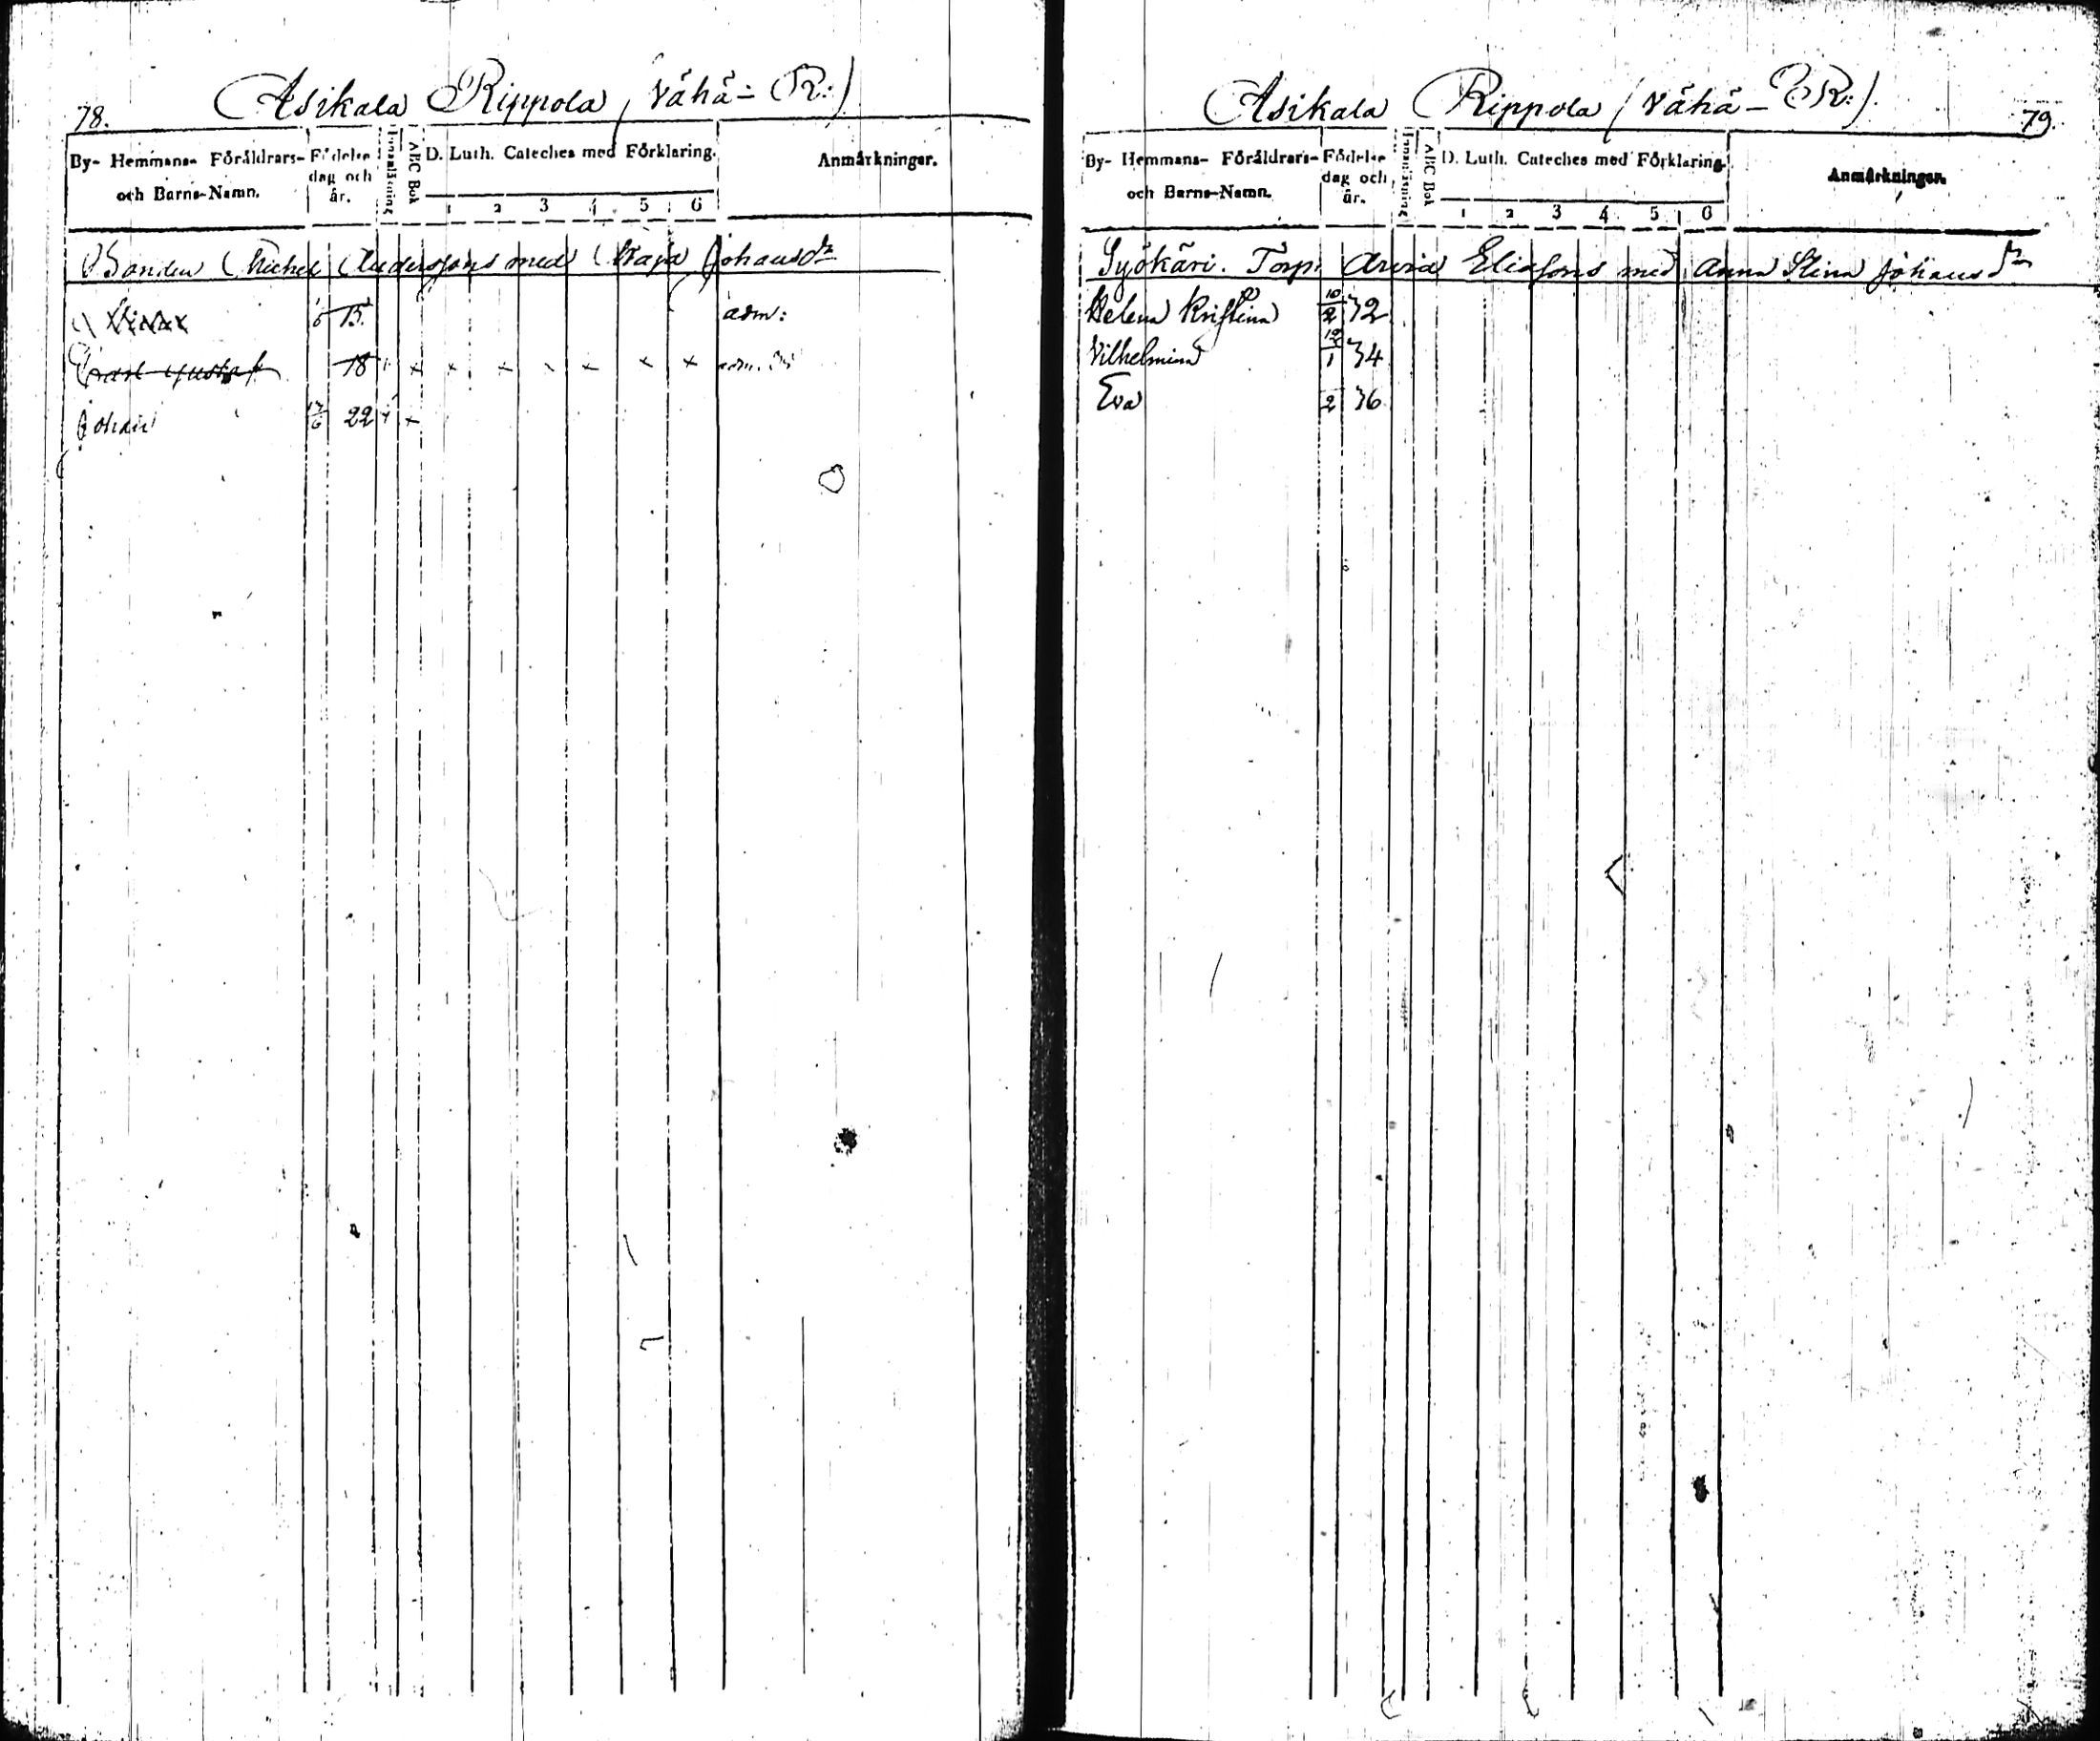 78.
Asikala Rippola (Vähä-R:)
By- Hemmans- Föräldrars- och Barns-Namn.
Födelse dag och år.
Innanläsning
ABC Bok
D. Luth. Cateches med Förklaring.
1 2 3 4 5 6
Anmärkningar.
Bonden Michel Anderssons med Maja Johansdr
15. adm:
Carl Gustaf 18 x x x x x x adm.
Johan 22 x
Asikala Rippola (Vähä-R:).
79.
By- Hemmans- Föräldrars- och Barns-Namn.
Födelse dag och år.
Innanläsning
ABC Bok
D. Luth. Cateches med Förklaring.
1 2 3 4 5 6
Anmärkningar.
Syökäri. Torp. Arvid Eliassons med Anna Stina Johansdr
Helena Kristina 10/2 32
Vilhelmina 12/1 34
Eva 2 36